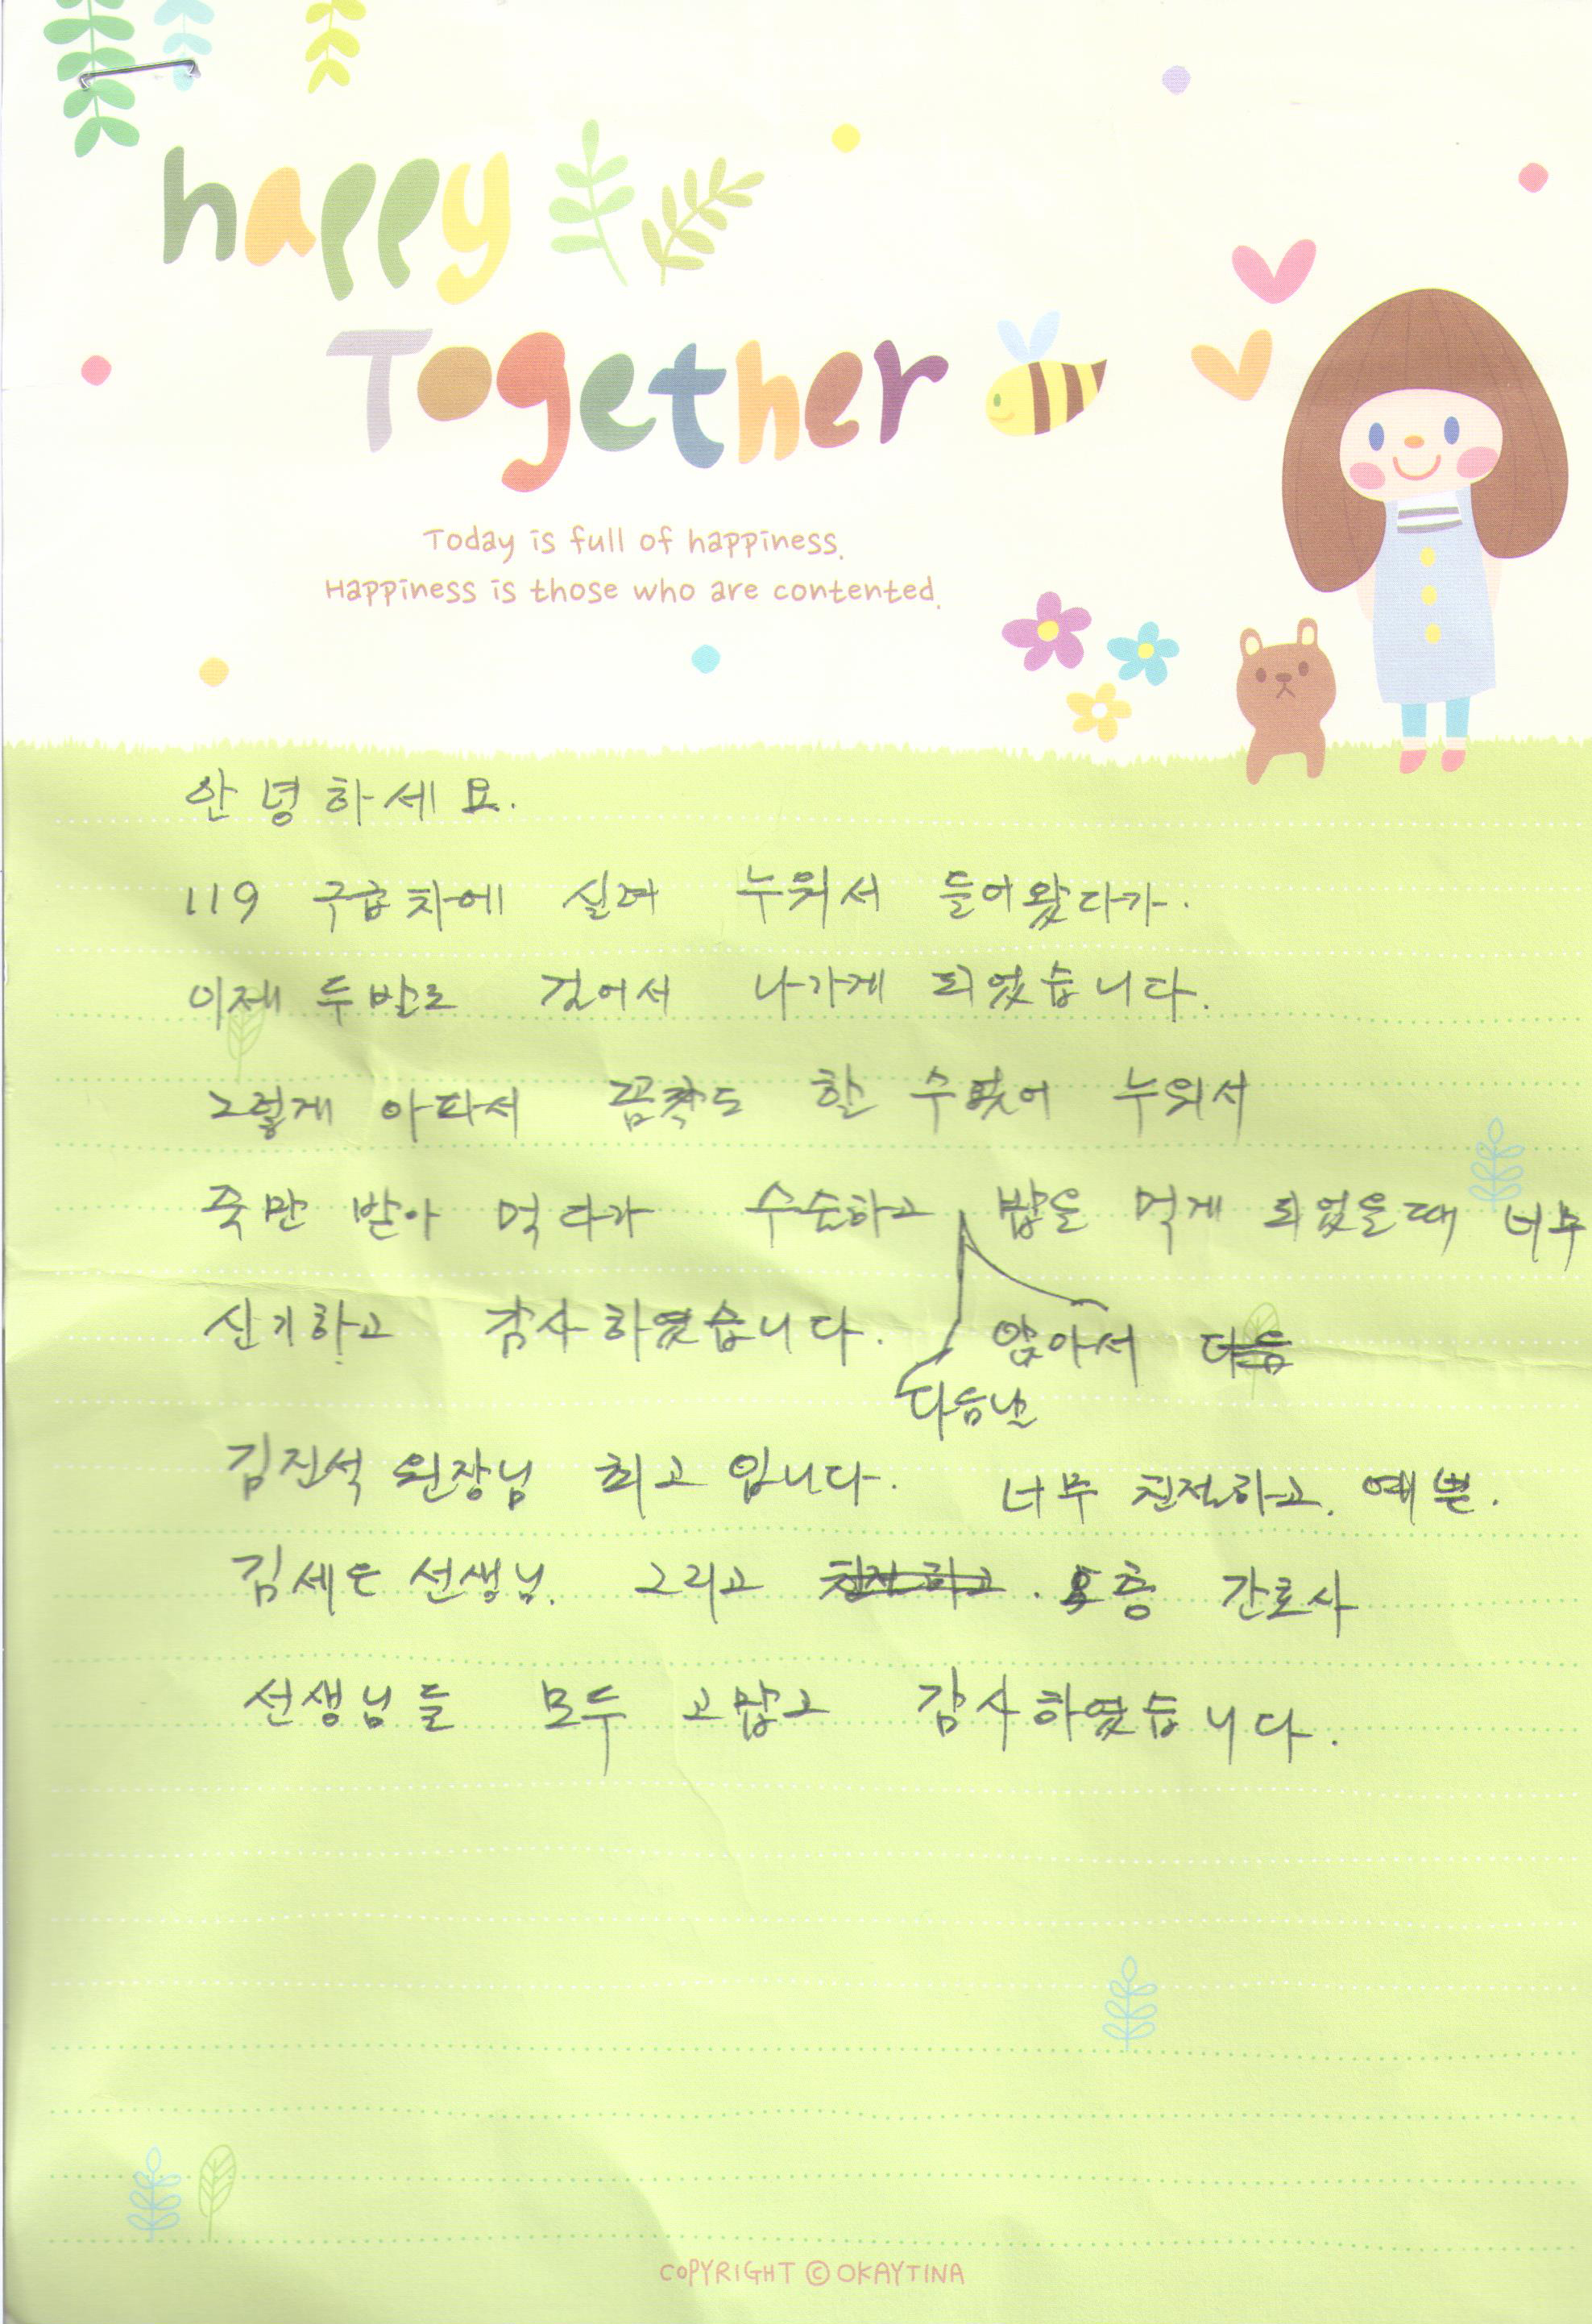 happy
Together
Today is full of happiness.
Happiness is those who are contented.
안녕하세요.
119 구급차에 실려 누워서 들어왔다가.
이제 두발로 걸어서 나가게 되었습니다.
그렇게 아파서 꼼짝도 할 수 없어 누워서
죽만 받아 먹다가 수술하고 밥을 먹게 되었을때 너무
신기하고 감사하였습니다. 앉아서 다음
다음날
김진석 원장님 최고 입니다. 너무 친절하고. 예쁜.
김세은 선생님. 그리고 친절하고. 5층 간호사
선생님들 모두 고맙고 감사하였습니다.
COPYRIGHT © OKAYTINA